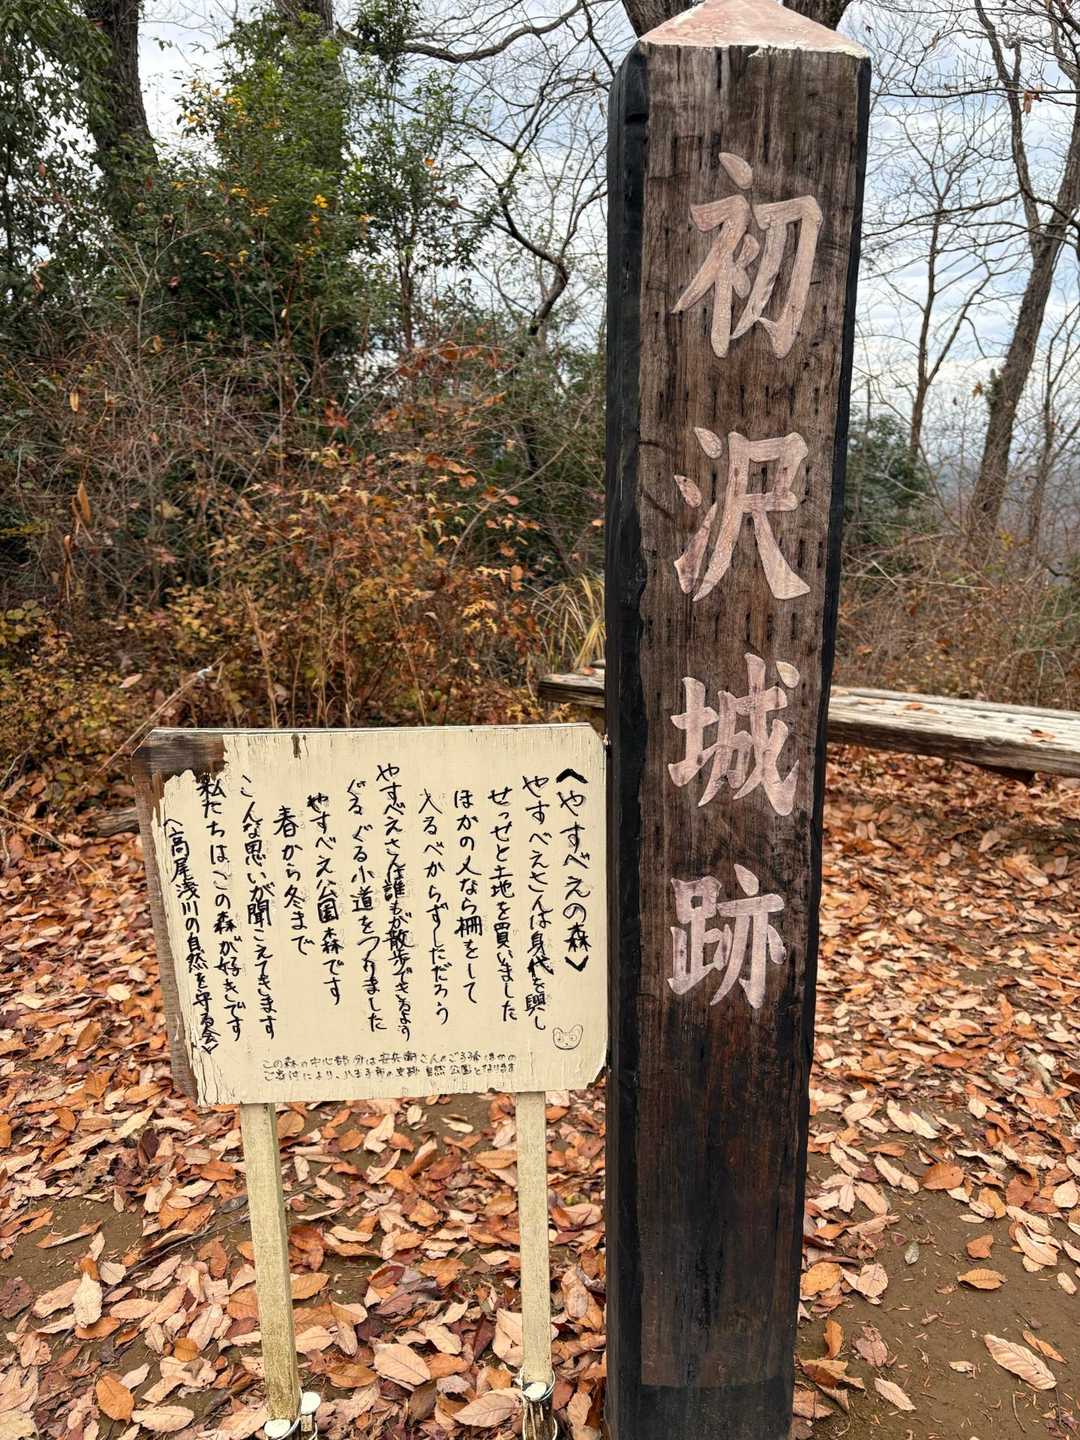 初沢城跡
〈やすべえの森〉
やすべえさんは身代を興し
せっせと土地を買いました
ほかの人なら柵をして
入るべからずしただろう
やすべえさんは誰もが散歩できるよう
ぐるぐる小道をつくりました
やすべえ公園森です
春から冬まで
こんな思いが聞こえてきます
私たちはこの森が好きです
〈高尾浅川の自然を守る会〉
この森の中心部分は安兵衛さんのご子孫ほかの
ご寄付により、八王子市の史跡自然公園となります